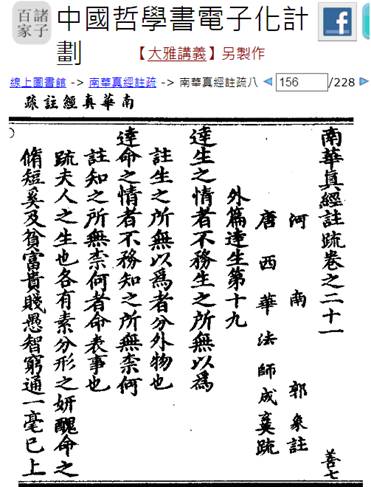 諸子百家
中國哲學書電子化計劃
【大雅講義】另製作
線上圖書館 -> 南華真經註疏 -> 南華真經註疏八 156 /228
南華真經註疏
南華真經註疏卷之二十一 善七
河南郭象註
唐西華法師成玄英疏
外篇達生第十九
達生之情者不務生之所無以為
註生之所無以為者分外物也
達命之情者不務知之所無柰何
註知之所無柰何者命表事也
疏夫人之生也各有素分形之妍醜命之
脩短及貧富貴賤愚智窮通一毫已上